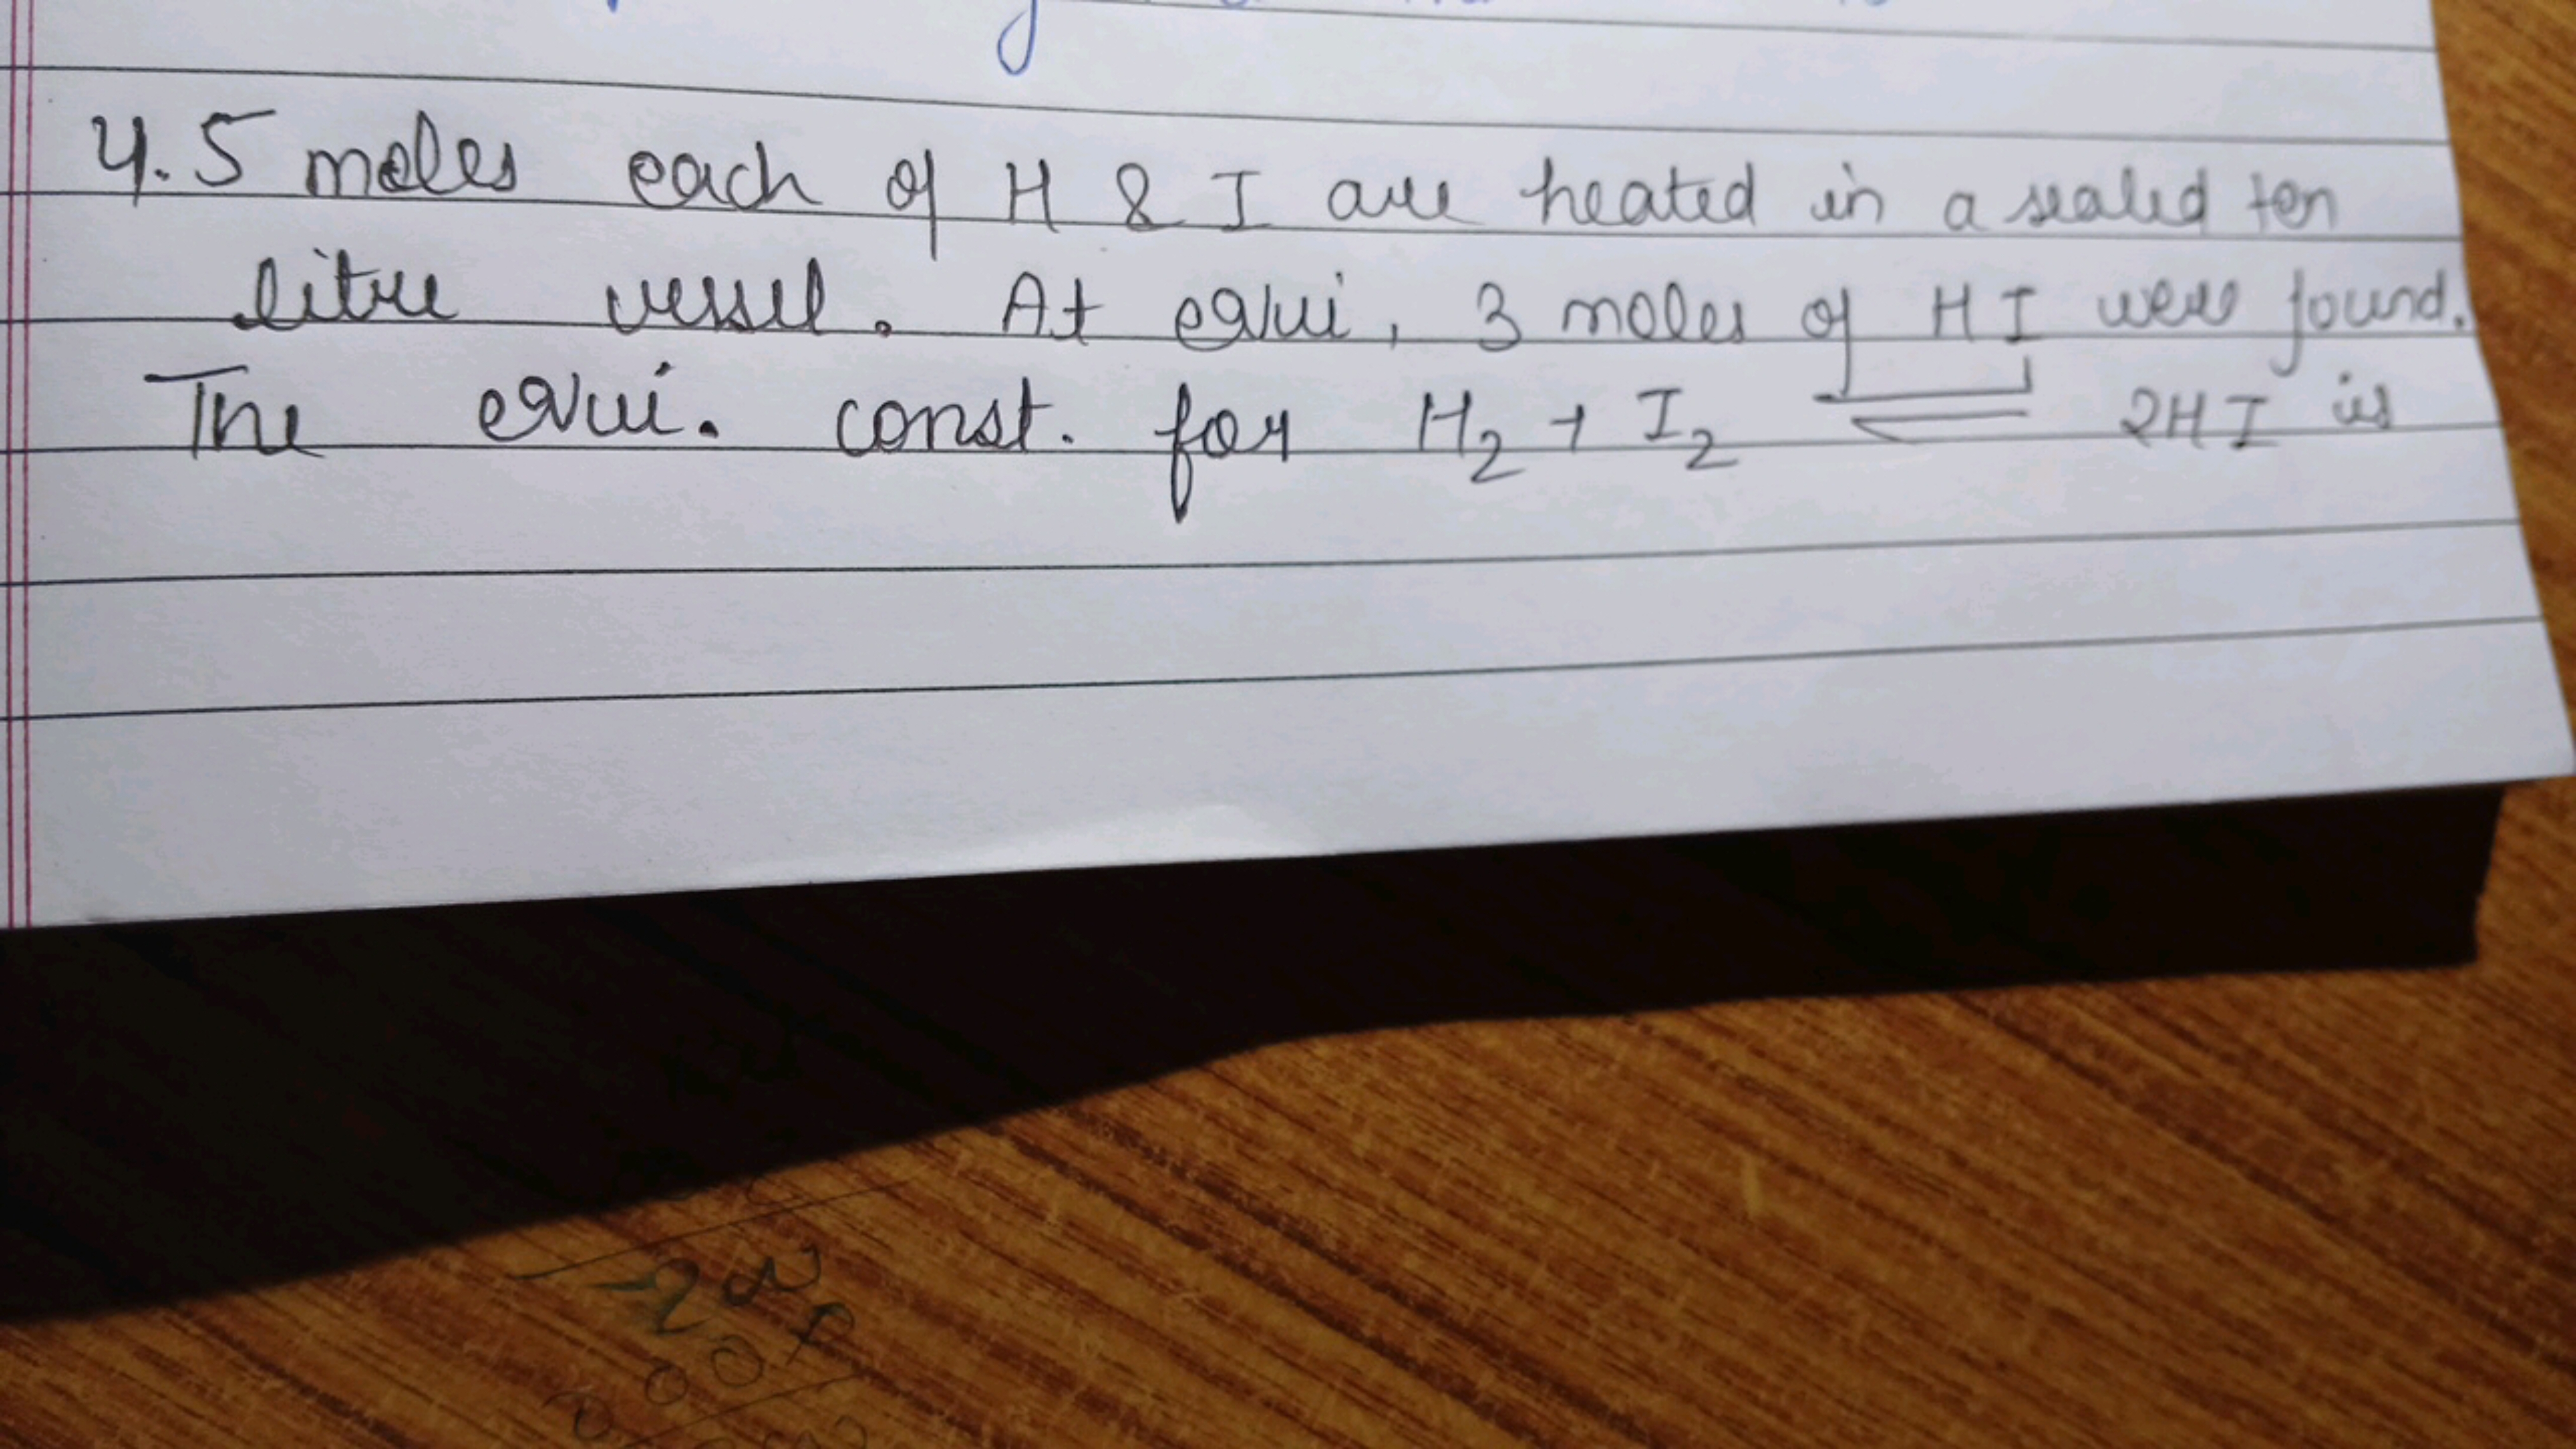 4.5 moles each of H & I are heated in a sealed ten
litre vessel. At equi, 3 moles of HI were found.
The equi. const. for H₂ + I₂ ⇌ 2HI is